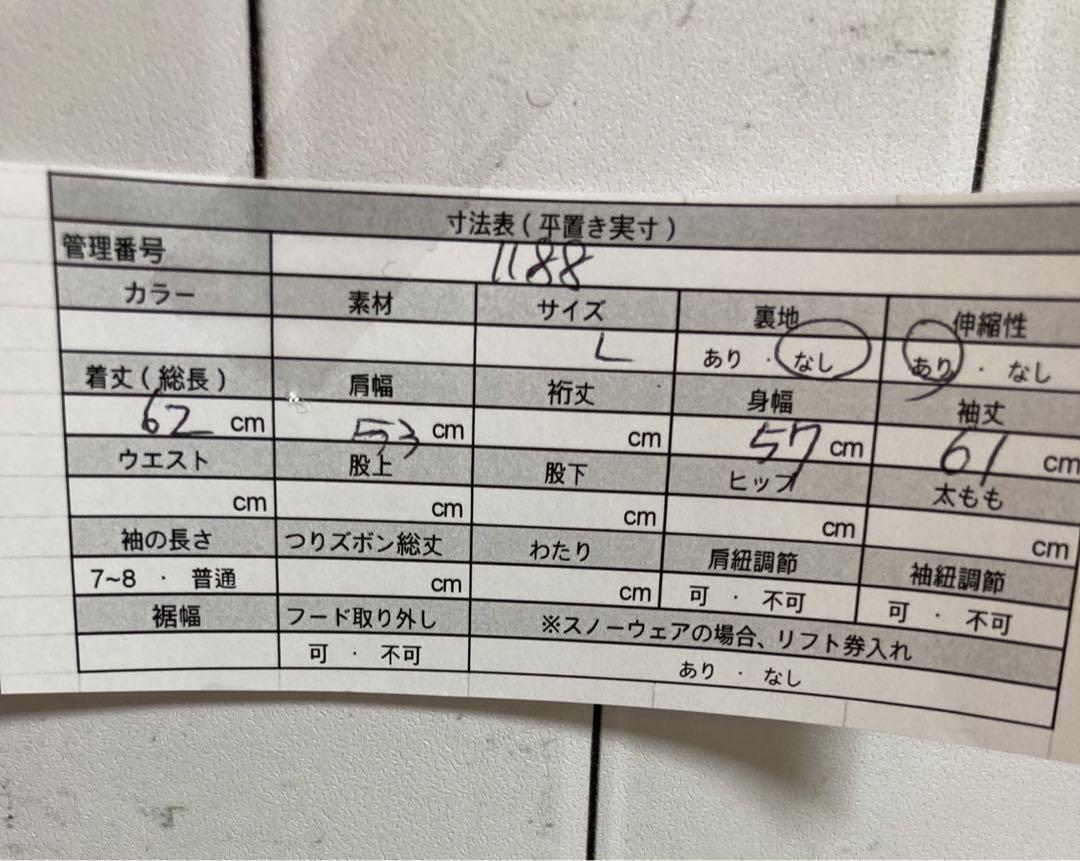 寸法表(平置き実寸)
管理番号 1188
カラー 素材 サイズ 裏地 伸縮性
L あり ・ なし あり ・ なし
着丈(総長) 肩幅 裄丈 身幅 袖丈
62 cm 53 cm cm 57 cm 61 cm
ウエスト 股上 股下 ヒップ 太もも
cm cm cm cm cm
袖の長さ つりズボン総丈 わたり 肩紐調節 袖紐調節
7~8 ・ 普通 cm cm 可 ・ 不可 可 ・ 不可
裾幅 フード取り外し ※スノーウェアの場合、リフト券入れ
可 ・ 不可 あり ・ なし